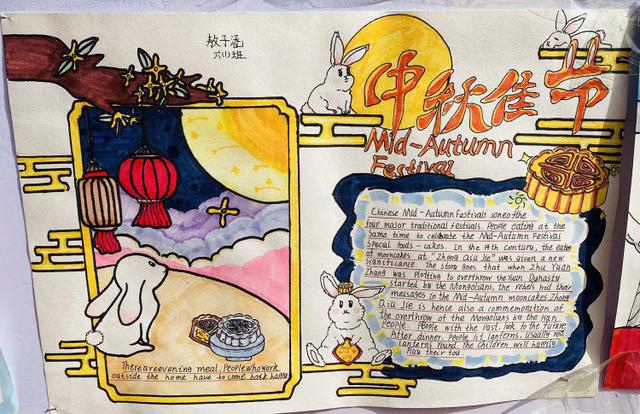 敖子涵
六(1)班
中秋佳节
Mid-Autumn
Festival
Chinese Mid-Autumn Festivalis sone othe
four major traditional Festivals. People eating at the
same time to celebrate the Mid-Autumn Festival
special foods-cakes. In the 14th century, the eating
of mooncakes at "Zhong Qiu Jie" was given a new
significance. The story goes that when Zhu Yuan
Zhang was plotting to overthrow the Yuan Dynasty
started by the Mongolians, the rebels hid their
messages in the Mid-Autumn mooncakes. Zhong
Qiu Jie is hence also a commemoration of
the overthrow of the Mongolians by the Han
People. People with the past, look to the future.
After dinner, People lit, lanterns, usually red
lanterns round. The children will happily
Play their toy.
Thereareevening meal, Peoplewhowork
outside the home have to come back happy